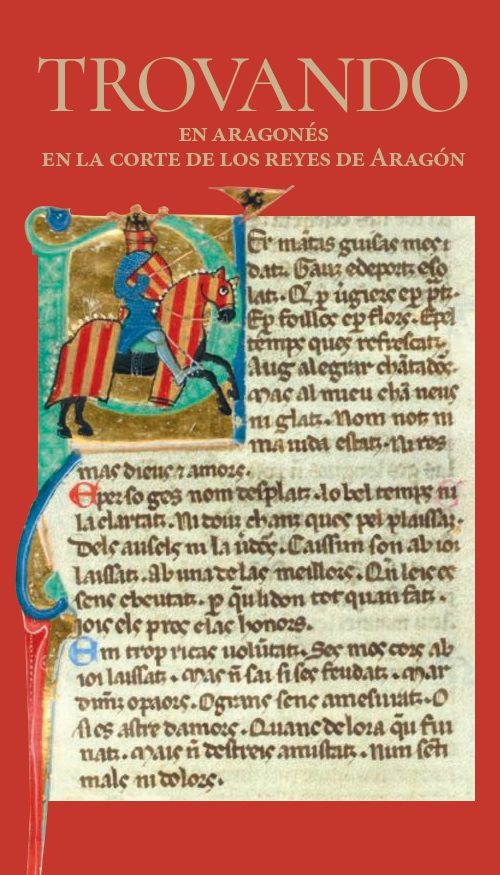 TROVANDO
EN ARAGONÉS
EN LA CORTE DE LOS REYES DE ARAGÓN
Er mãtas guisas mes
datz. Gauz edeportz eso
latz. Q̃ p ũgiers ep p̃tz.
Ep foillos ep flors. Epel
temps ques refrescatz.
Aug alegrar chãtadõs.
Mas al mieu chã neus
ni glatz. Nom notz ni
maiuda estatz. Ni res
mas dieus ⁊ amors.
Epero ges nom desplatz. lo bel temps ni
la clartatz. Ni dolz chanz ques pel plaissatz.
dels ausels ni la ũdõs. Caissim son ab ioi
laissatz. Ab una de las meillors. Qñ leis es
sens ebeutatz. p q̃u li don tot quan fatz.
iois els pres elas honors.
Em trop ricas volũtatz. Ses mos cors ab
ioi laissatz. Mas ñ sai si ses feudatz. Mar
dim̃z opaors. Ograns sens amesuratz. O
si es astre damors. Quanc delora q̃u fui
natz. Mais ñ destreis amistatz. Nim sẽti
mals ni dolors.